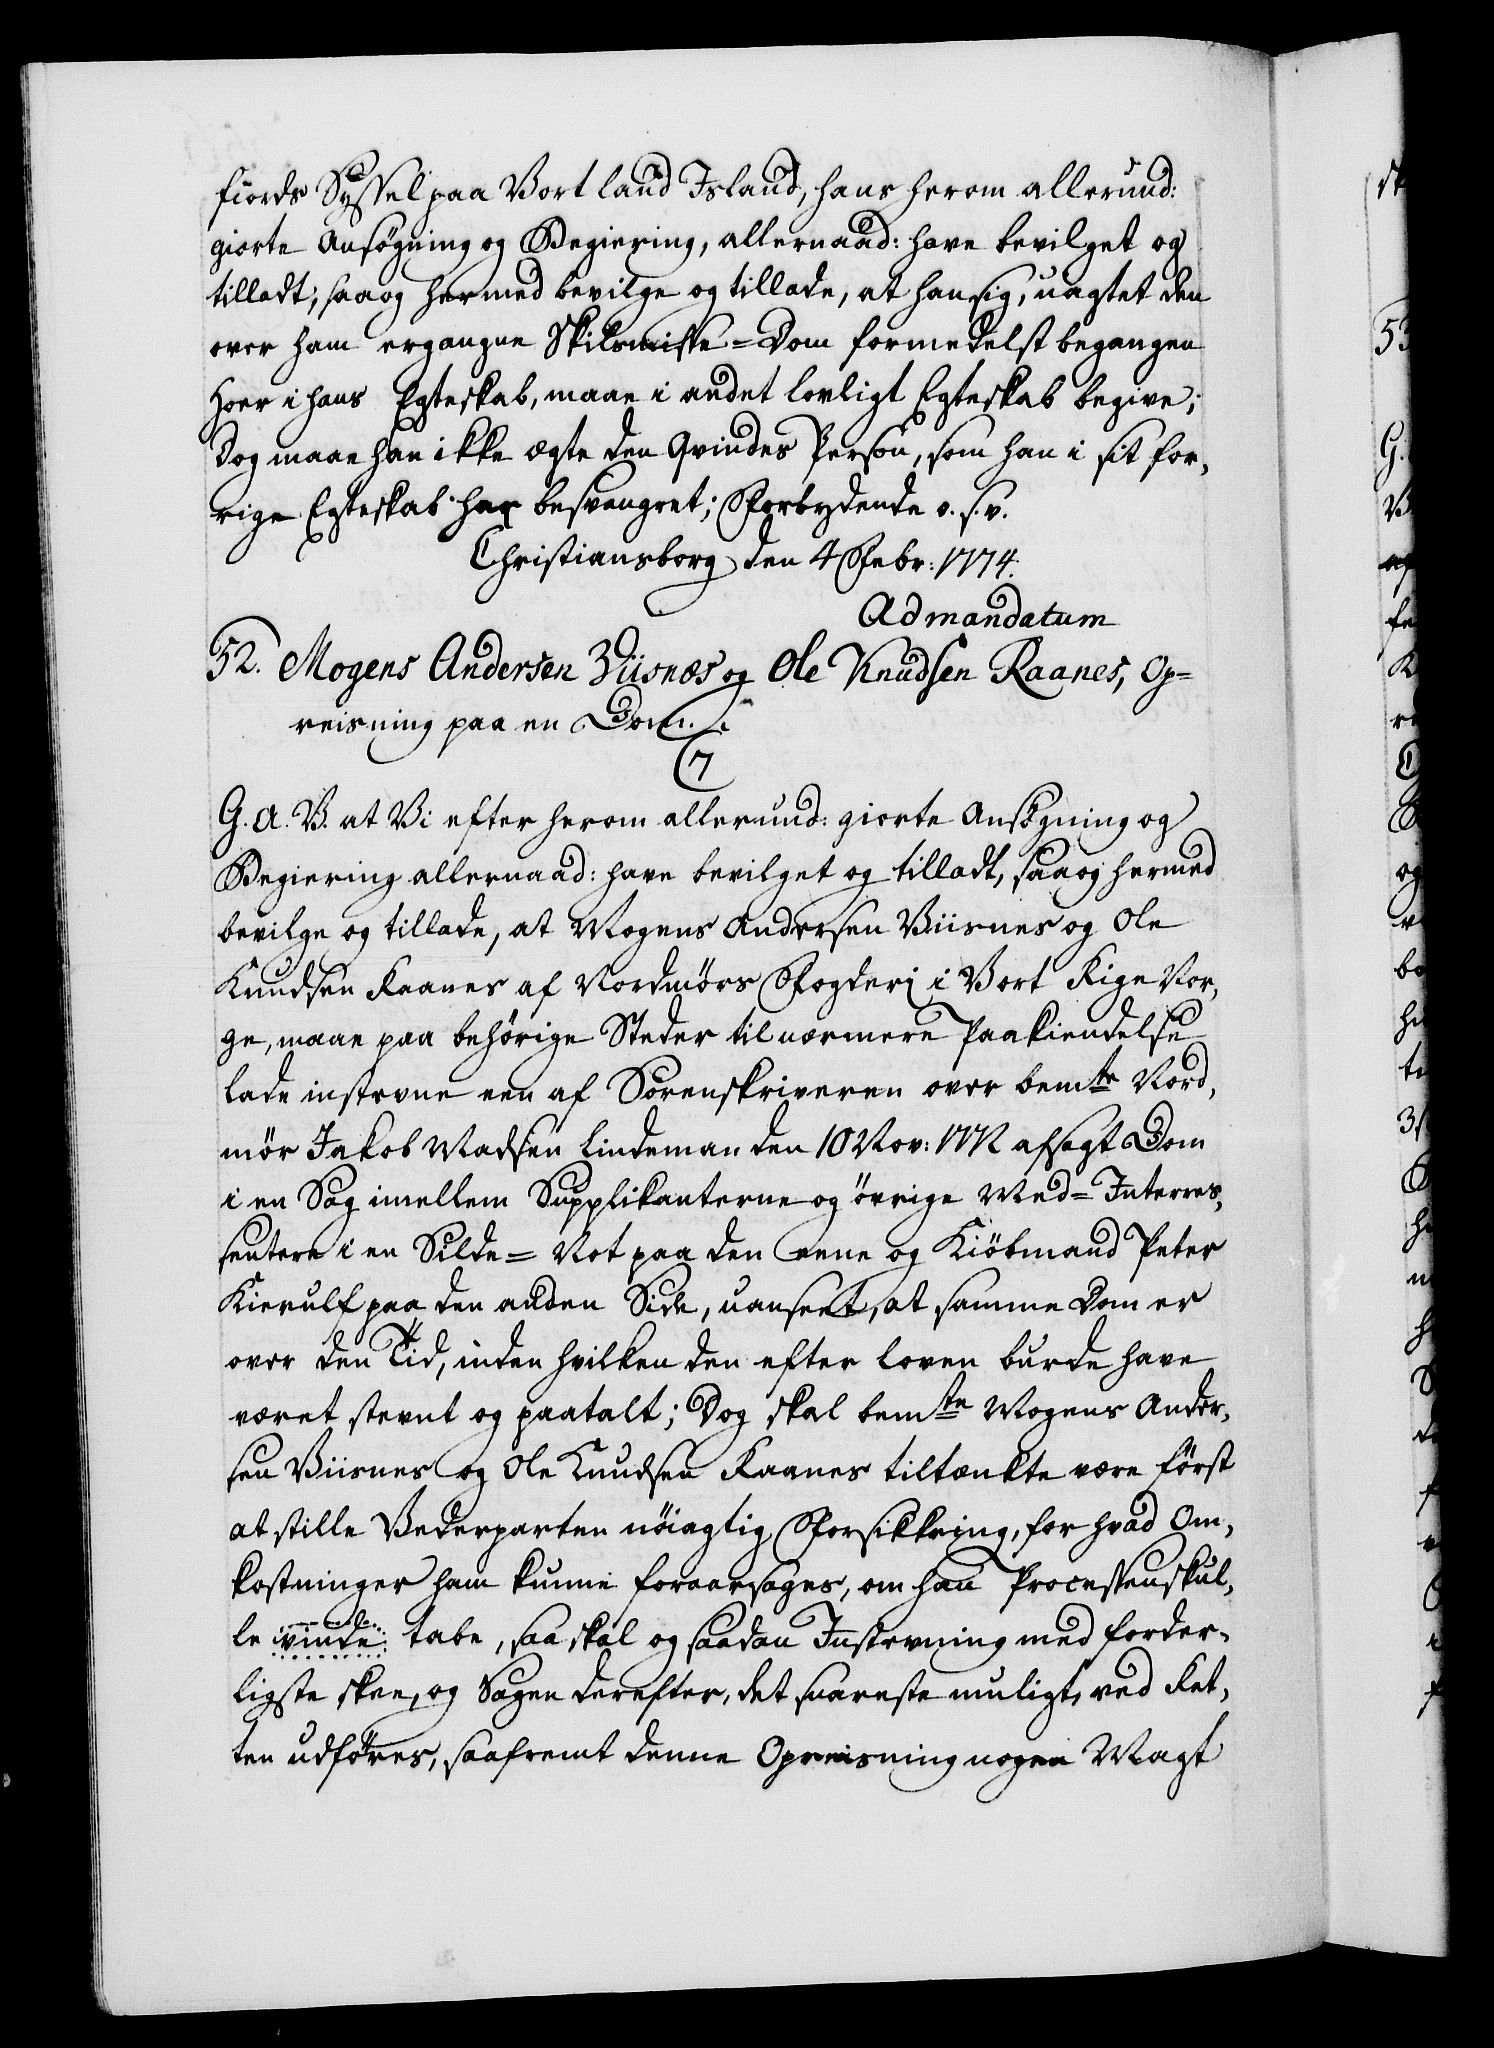 fiords Syssel paa Vort land Island, hans herom allerund:
giorte Ansøgning og Begiering, allernaad: have bevilget og
tilladt, saa og hermed bevilge og tillade, at han sig, uagtet den
over ham ergangne Skilsmisse=Dom formedelst begangen
Hoer i hans Egteskab, maae i andet lovligt Egteskab begive;
Dog maae han ikke ægte den Qvindes Person, som han i sit for,
rige Egteskab har besvangret; Forbydende o. s. v.
Christiansborg den 4 Febr: 1774.
Ad mandatum
52. Mogens Andersen Viisnæs og Ole Knudsen Raanes, Op=
reisning paa en Dom.
G. A. V. at Vi efter herom allerund: giorte Ansøgning og
Begiering allernaad: have bevilget og tilladt, saa og hermed
bevilge og tillade, at Mogens Andersen Viisnes og Ole
Knudsen Raanes af Nordmørs Fogderi i Vort Rige Nor,
ge, maae paa behørige Steder til nærmere Paakiendelse
lade instevne een af Sorenskriveren over bemte Nord,
mør Jakob Madsen Lindeman den 10 Nov: 1772 afsagt Dom
i en Sag imellem Supplikanterne og øvrige Med=Interes,
sentere i en Silde=Not paa den eene og Kiöbmand Peter
Kierulf paa den anden Side, uanseet, at samme Dom er
over den Tid, inden hvilken den efter loven burde have
været stevnt og paatalt; Dog skal bemte Mogens Ander,
sen Viisnes og Ole Knudsen Raanes tiltænkte være først
at stille Vederparten nöiagtig Forsikkring, for hvad Om,
kostninger ham kunne foraarsages, om han Processen skul,
le vinde tabe, saa skal og saadan Instevning med forder,
ligste skee, og Sagen derefter, det snareste muligt, ved Ret,
ten udføres, saafremt denne Opreisning nogen Magt